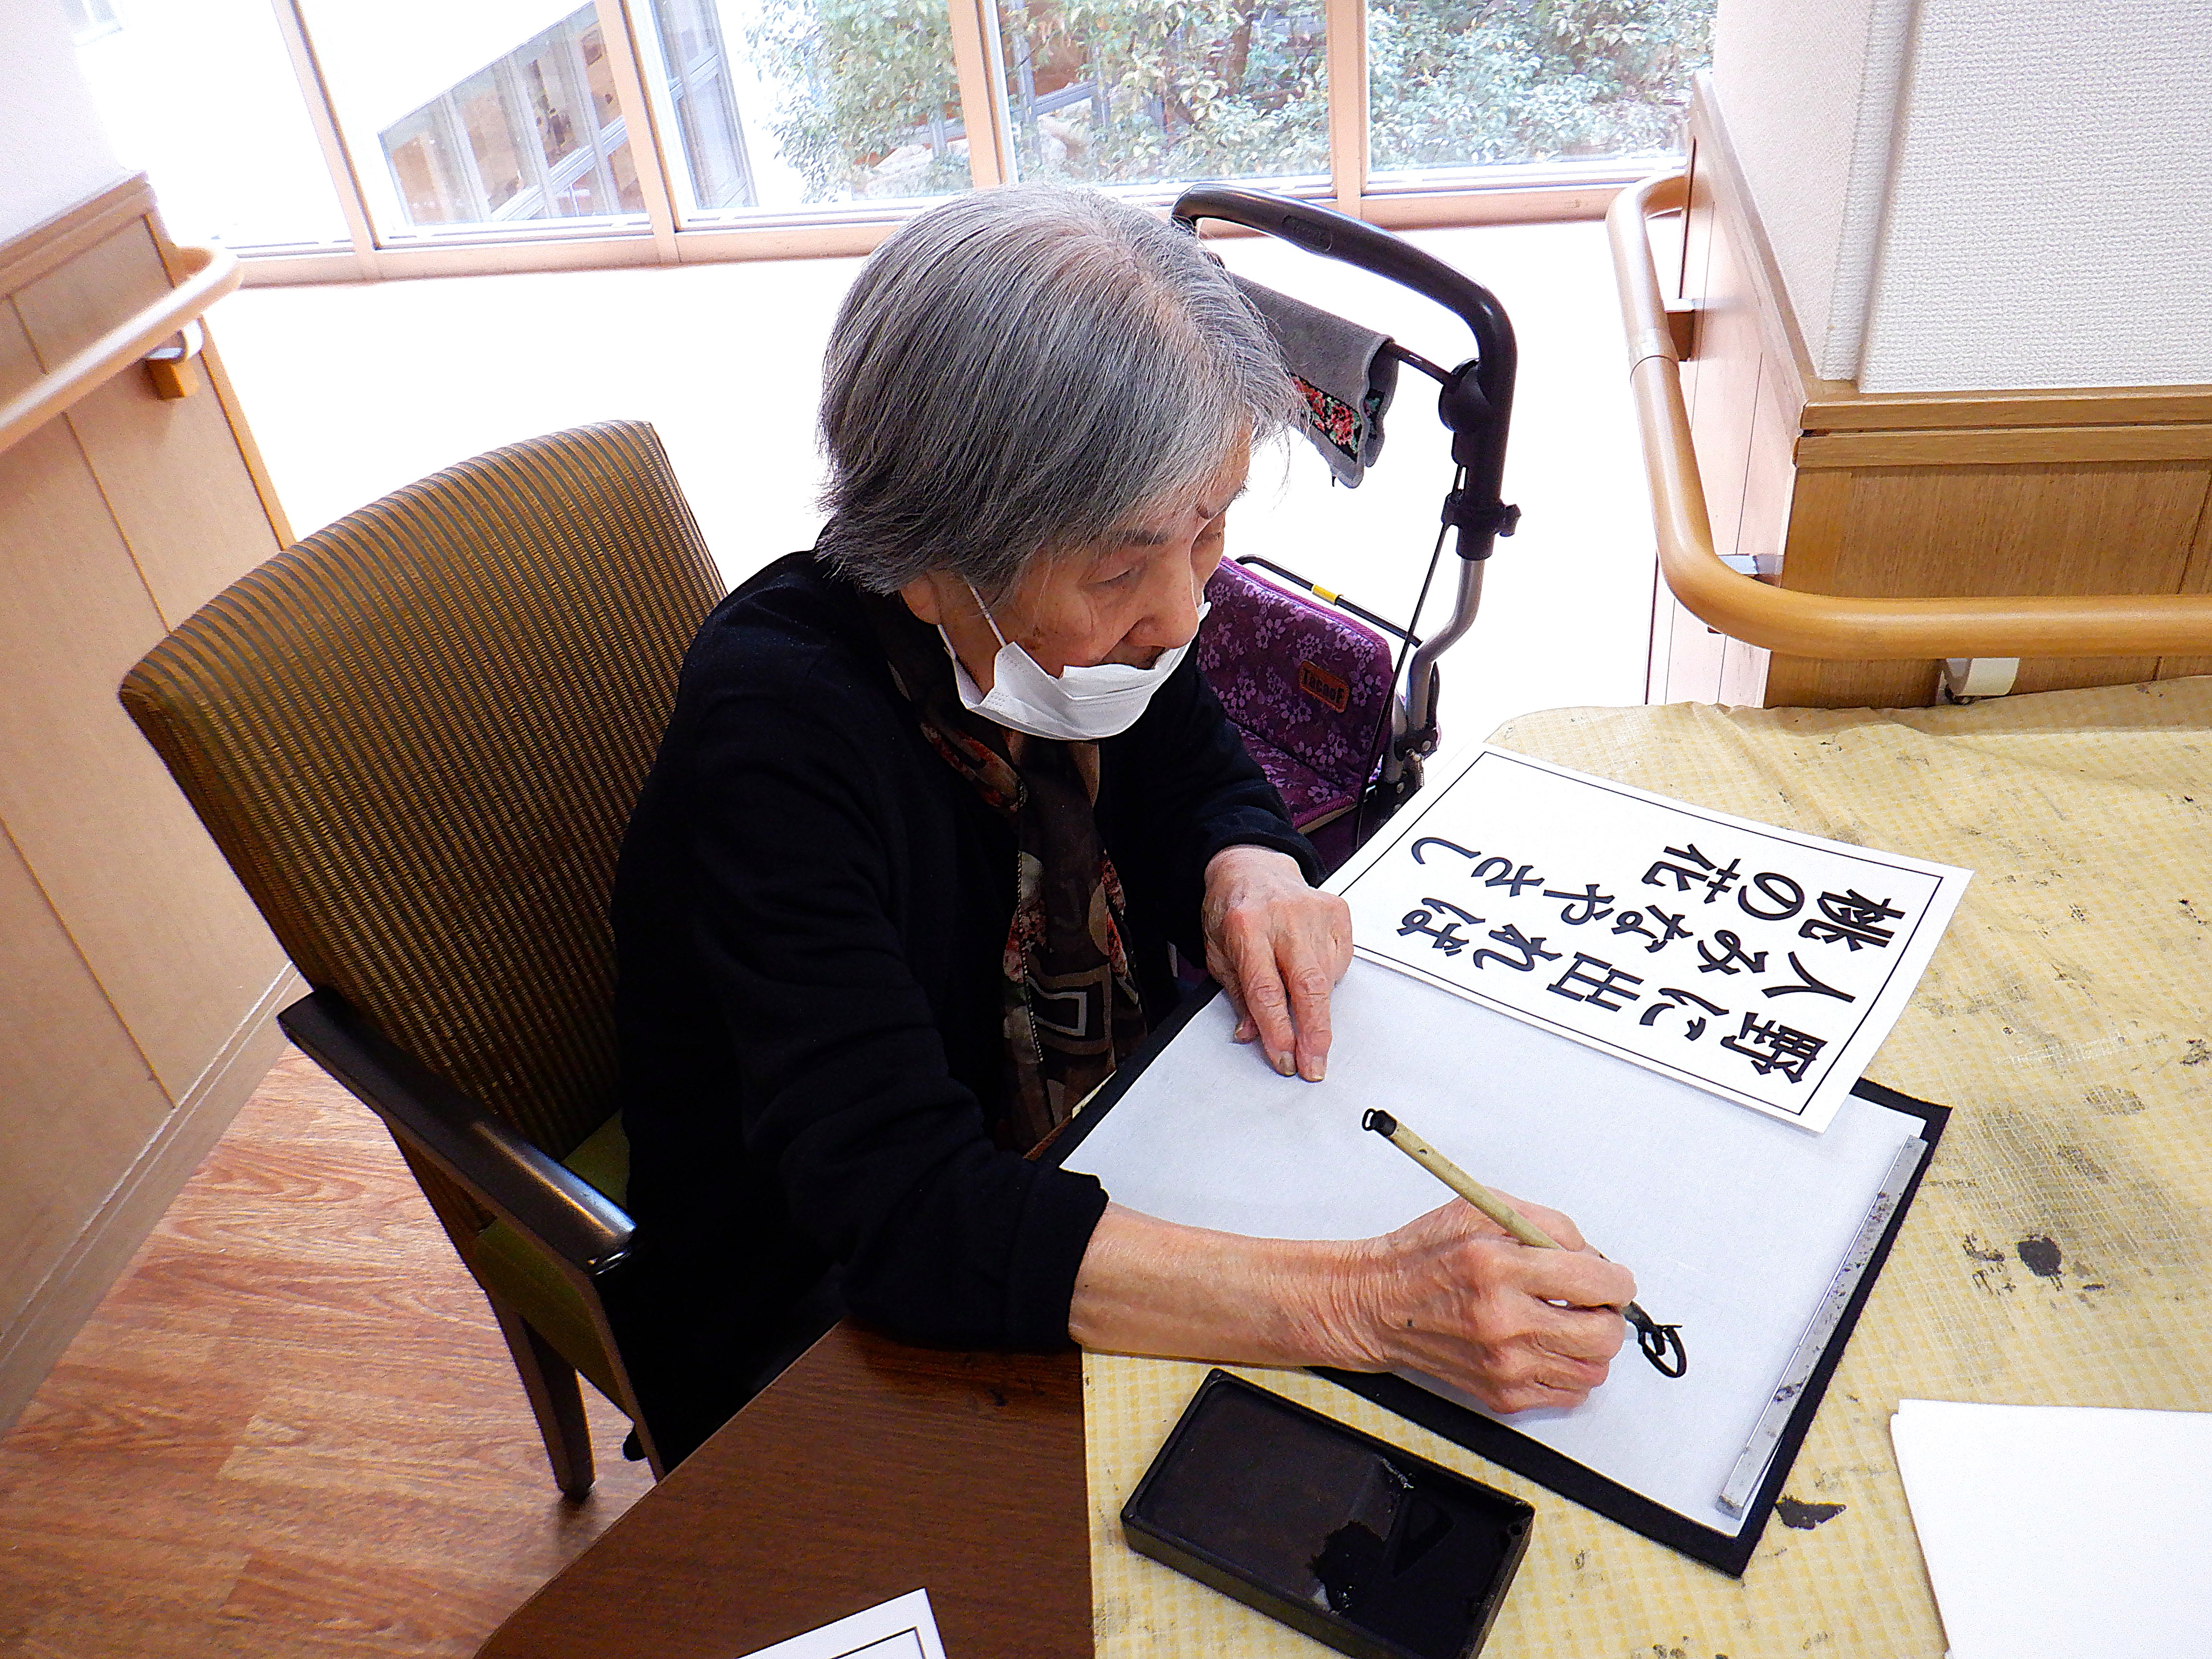 野に出れば
人みなやさし
桃の花
TacaoF